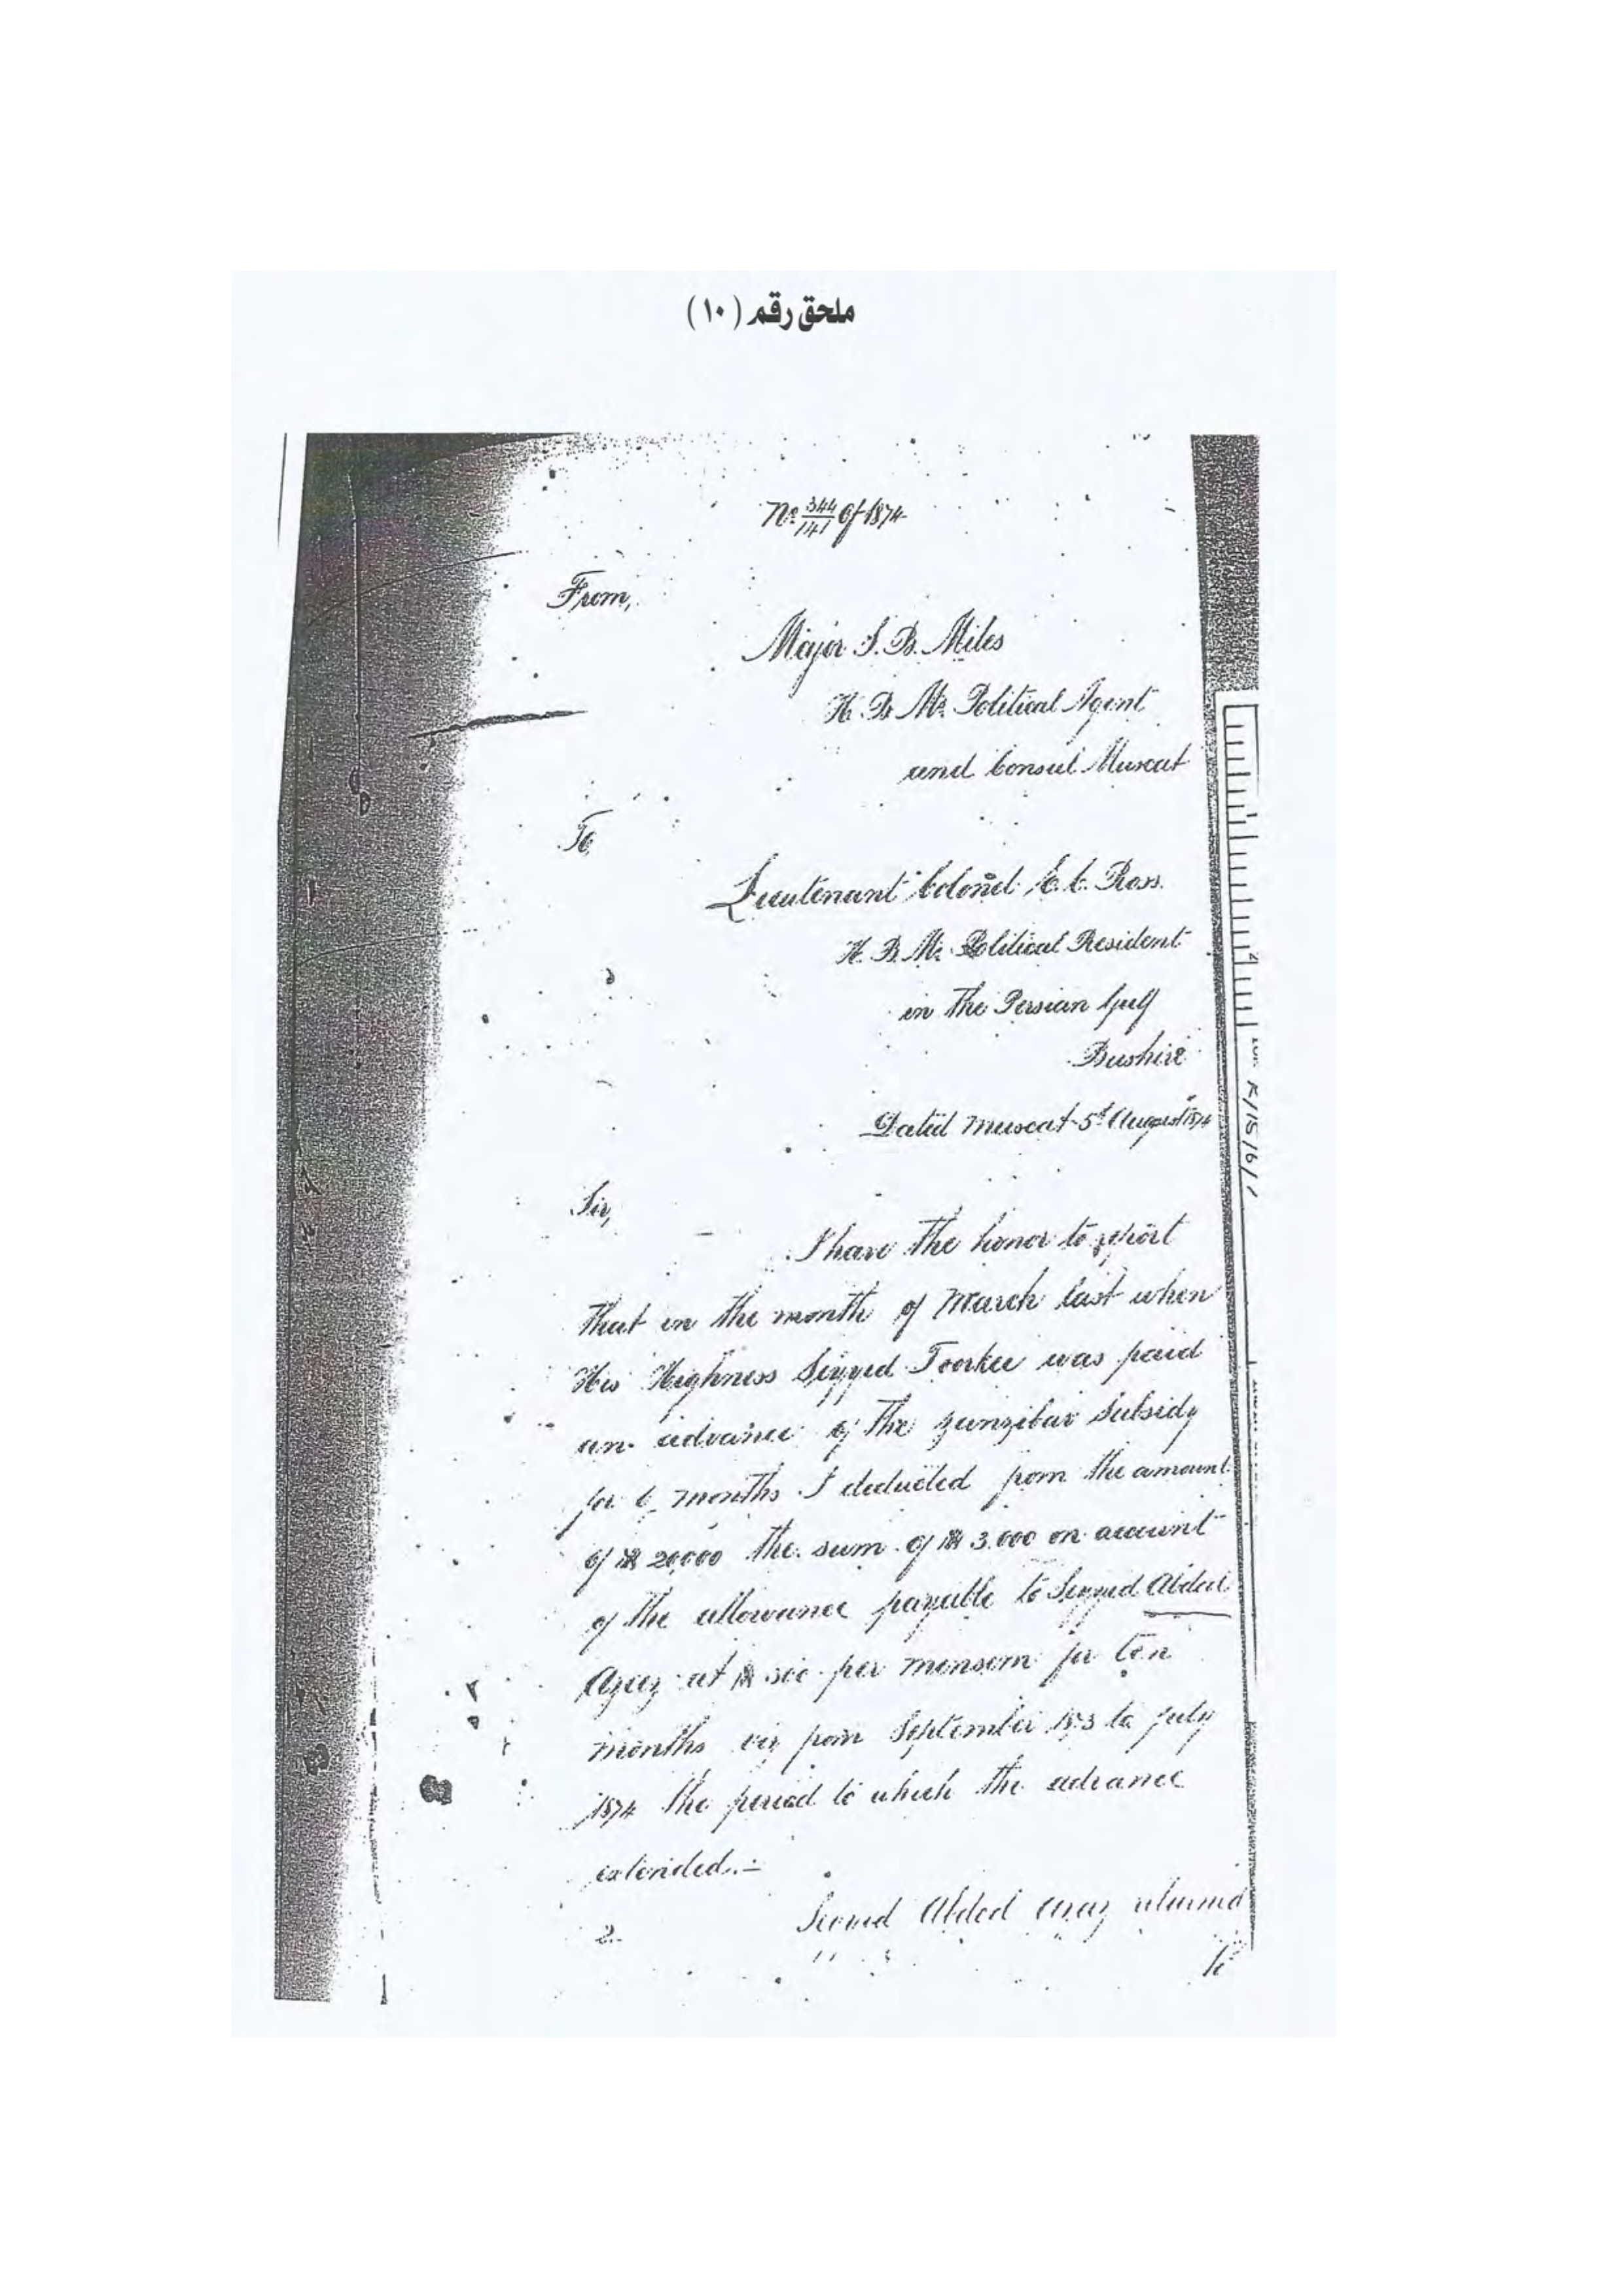 ملحق رقم (١٠)
No 344/141 of 1874
From,
Major S. B. Miles
H. B. M's Political Agent
and Consul Muscat
To,
Lieutenant Colonel E. C. Ross.
H. B. M's Political Resident
in the Persian Gulf
Bushire
Dated Muscat 5th August 1874
Sir,
I have the honor to report
that in the month of March last when
His Highness Seyyed Toorkee was paid
an advance of the Zanzibar Subsidy
for 6 months I deducted from the amount
of 20,000 the sum of 3.000 on account
of the allowance payable to Seyyed Abdul
Azeez at per mensem for ten
months viz from September 1873 to July
1874 the period to which the advance
extended.-
2. Abdul Azeez returned
to
R/15/6/